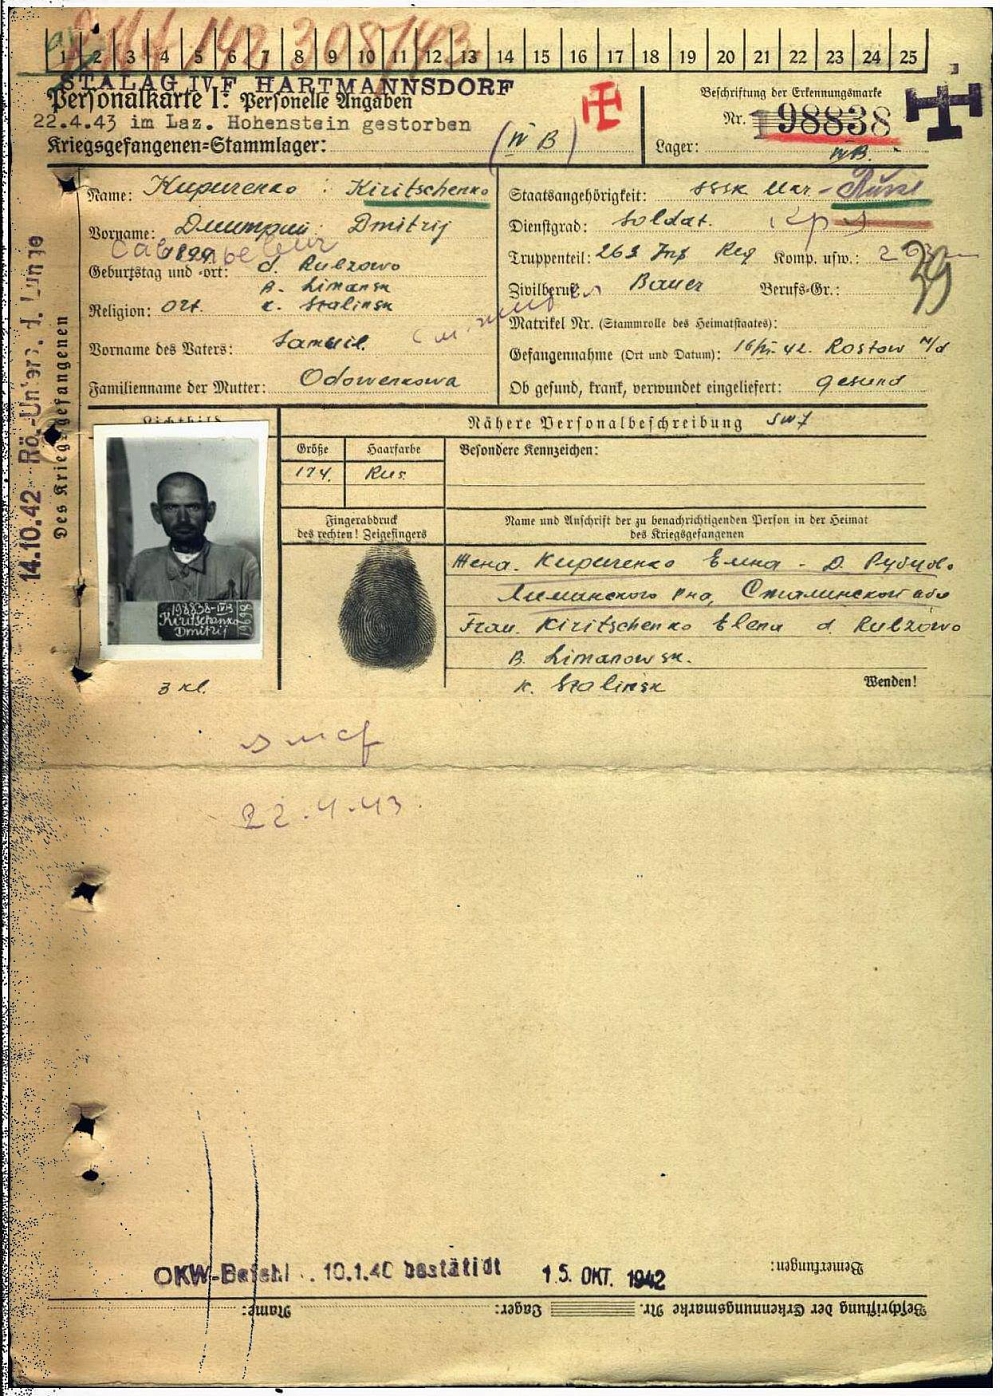 1 2 3 4 5 6 7 8 9 10 11 12 13 14 15 16 17 18 19 20 21 22 23 24 25
STALAG IV F HARTMANNSDORF
Personalkarte I: Personelle Angaben
22.4.43 im Laz. Hohenstein gestorben
Kriegsgefangenen-Stammlager: (IV B)
Beschriftung der Erkennungsmarke
Nr. 198838
Lager: IV B.
Name: Кириченко : Kiritschenko
Vorname: Дмитрий Dmitrij
Geburtstag und -ort: d. Rubzowo
R. Limansk
Religion: Ort. k. Stalinsk
Vorname des Vaters: Samuil.
Familienname der Mutter: Odowenkowa
Staatsangehörigkeit: Ukr - Russe
Dienstgrad: Soldat.
Truppenteil: 263 Inf Reg Komp. usw.:
39
Zivilberuf: Bauer Berufs-Gr.:
Matrikel Nr. (Stammrolle des Heimatstaates):
Gefangennahme (Ort und Datum): 42. Rostow n/d
Ob gesund, krank, verwundet eingeliefert: gesund
14.10.42
Des Kriegsgefangenen
Lichtbild
Nähere Personalbeschreibung
Größe Haarfarbe Besondere Kennzeichen:
174. Rus.
Fingerabdruck
des rechten! Zeigefingers
Name und Anschrift der zu benachrichtigenden Person in der Heimat
des Kriegsgefangenen
Жена. Кириченко Елена - д. Рубцово
Лиманского р-на, Сталинской обл
Frau. Kiritschenko Elena d. Rubzowo
R. Limanowsk.
k. Stalinsk
Wenden!
198838-IVB
Kiritschenko
Dmitrij
3 kl.
22.4.43.
OKW-Befehl . 10.1.40 bestätidt 15. OKT. 1942
Bemerkungen:
Beschriftung der Erkennungsmarke Nr. Lager: Name: